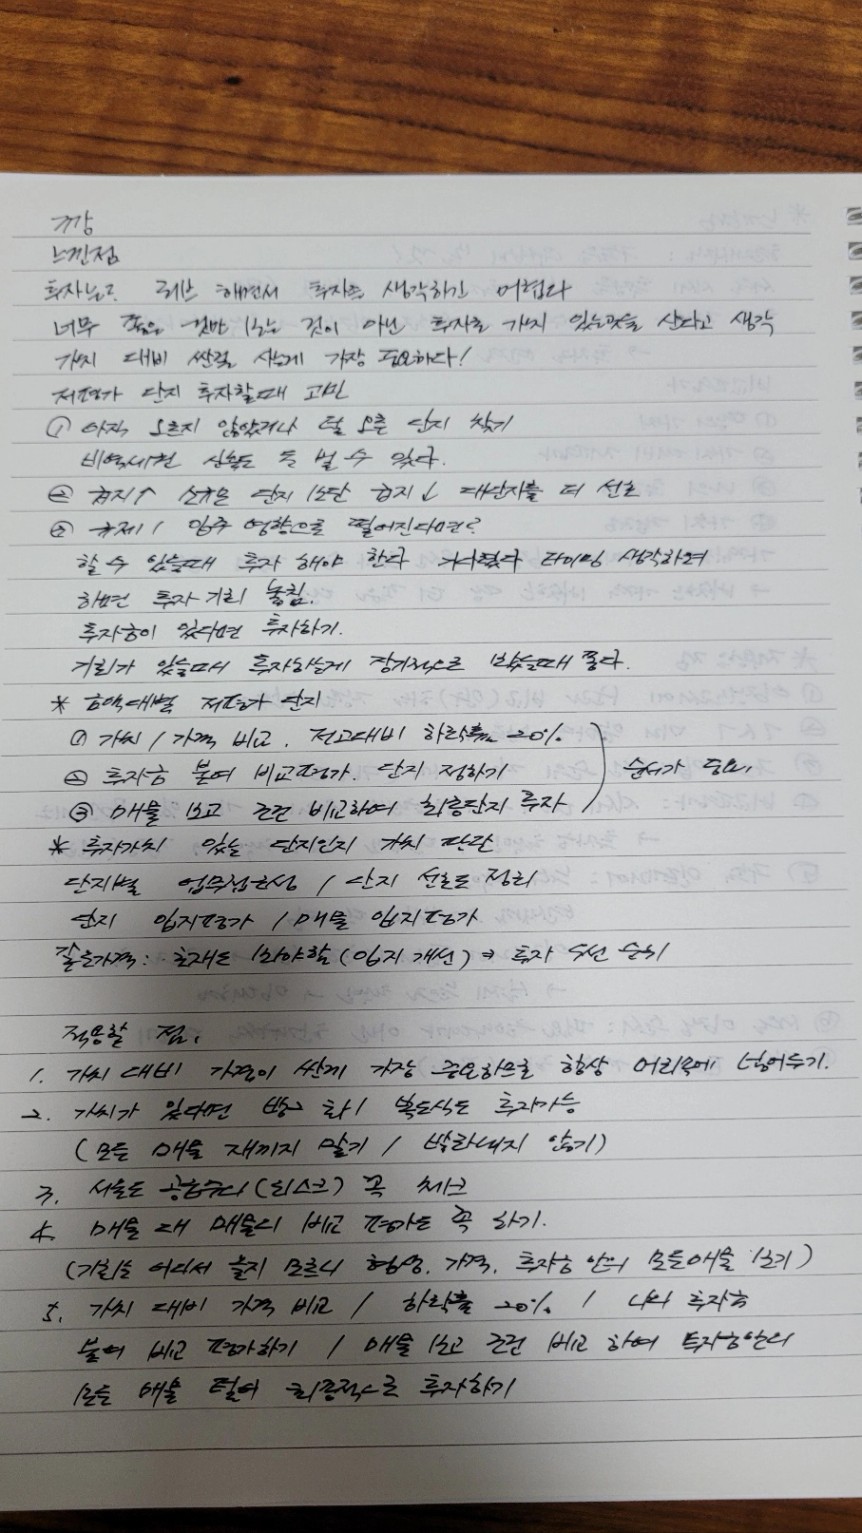 7강
느낀점
투자하고 해면서 투자를 생각하긴 어렵다
너무 좋은 것만 보는 것이 아닌 투자로 가치 있는곳을 산다고 생각
가치 대비 싼걸 사는게 가장 중요하다!
저평가 단지 투자할때 고민
① 아직 오르지 않았거나 덜 오른 단지 찾기
비역세권 신축도 돈 벌 수 있다.
② 급지↑ 소규모 단지 보단 급지↓ 대단지를 더 선호
② 규제 / 입주 영향으로 떨어진다면?
할 수 있을때 투자 해야 한다 기다렸다 타이밍 생각하며
하면 투자 기회 놓침.
투자금이 있다면 투자하기.
기회가 있을때 투자하는게 장기적으로 봤을때 좋다.
* 금액대별 저평가 단지
① 가치 / 가격 비교. 전고대비 하락률 -20%
② 투자금 붙여 비교평가. 단지 정하기 순서가 중요.
③ 매물 보고 조건 비교하여 최종단지 투자
* 투자가치 있는 단지인지 가치 판단
단지별 업무접근성 / 단지 선호도 정리
단지 입지평가 / 매물 입지평가
같은가격 : 호재도 봐야함 (입지 개선) → 투자 우선 순위
적용할 점.
1. 가치 대비 가격이 싼게 가장 중요하므로 항상 머리속에 넣어두기.
2. 가치가 있다면 방2 화1 복도식도 투자가능
(모든 매물 재끼지 말기 / 발라내지 않기)
3. 서울도 공급수리 (리스크) 꼭 체크
4. 매물 대 매물의 비교 평가도 꼭 하기.
(기회는 어디서 올지 모르니 협상. 가격. 투자금 안의 모든매물 보기)
5. 가치 대비 가격 비교 / 하락률 -20% / 나의 투자금
붙여 비교 평가하기 / 매물 보고 조건 비교 하여 투자금안의
모든 매물 털어 최종적으로 투자하기